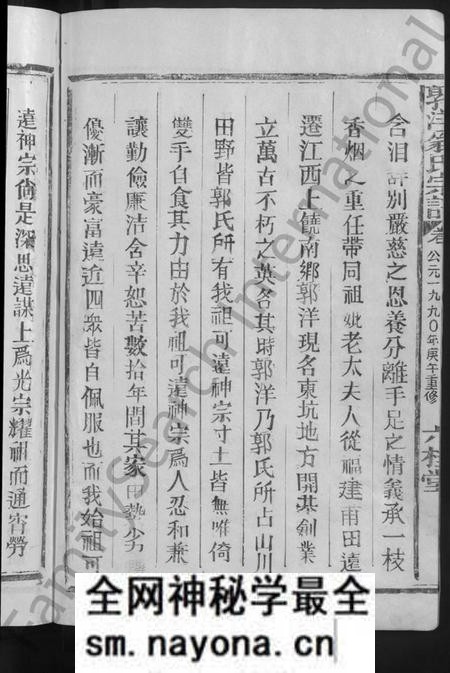 郭洋翁氏宗譜 卷 公元一九九〇年庚午重修 六桂堂
含泪 別嚴慈之恩養分離手足之情義承一枝
香烟之重任帶同祖妣老太夫人從福建甫田遠
遷江西上饒南鄉郭洋現名東坑地方開基創業
立萬古不朽之英名其時郭洋乃郭氏所占山川
田野皆郭氏所有我祖可達神宗寸土皆無唯倚
雙手自食其力由於我祖可達神宗為人忍和兼
讓勤儉廉洁舍辛恕苦數拾年間其家 勢
優漸而豪富遠近四衆皆自佩服也而我始祖可
達神宗尚是深思遠謀上為光宗耀祖而通宵勞
FamilySearch International
全网神秘学最全
sm.nayona.cn